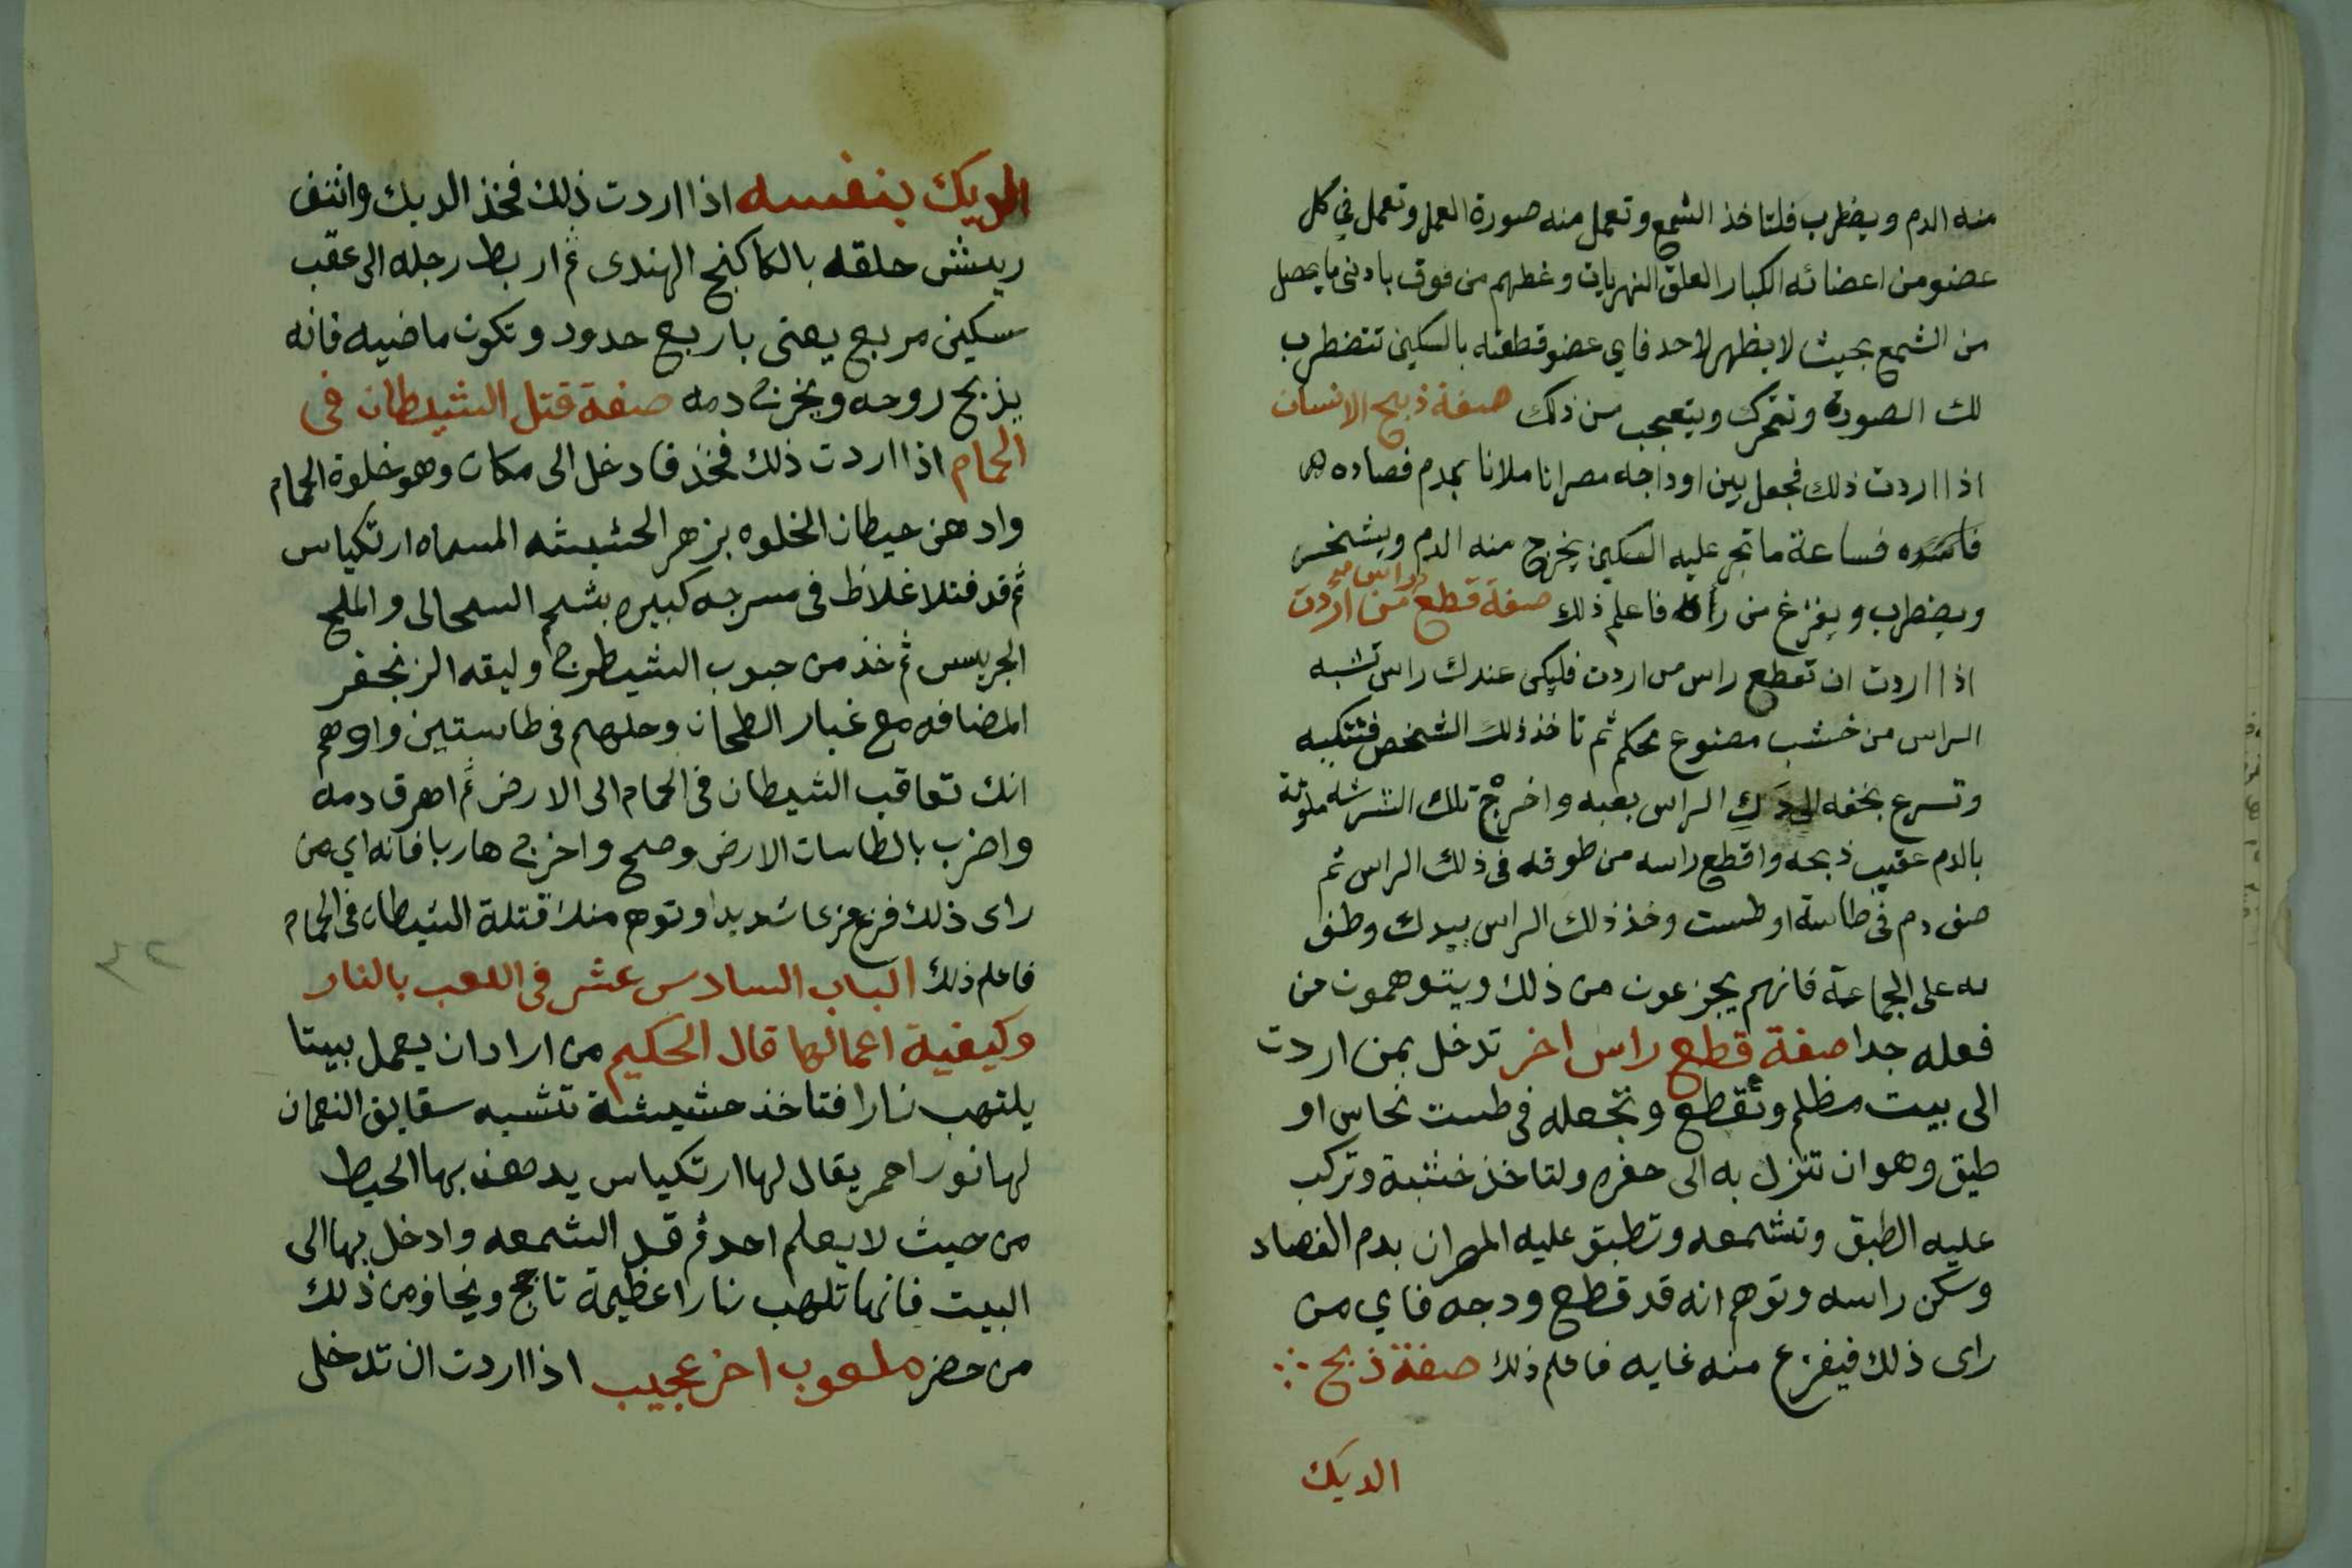 منه الدم ويضطرب فلتاخذ الشمع وتعمل منه صورة العمل وتعمل في كل
عضو من اعضائه الكبار العلق النهريات وغطهم من فوق بادنى ما يحصل
من الشمع بحيث لا يظهر لاحد فاي عضو قطعته بالسكين تتضطرب
لك الصورة وتتحرك ويتعجب من ذلك صفة ذبح الانسان
اذا اردت ذلك فجعل بين اوداجه مصرانا ملانا بدم فصاده
فساعة ما تجر عليه السكين يخرج منه الدم ويشخر
ويضطرب ويفزغ من رأه فاعلم ذلك صفة قطع راس من اردت
اذا اردت ان تقطع راس من اردت فليكن عندك راس تشبه
الراس من خشب مصنوع محكم ثم تاخذ ذلك الشخص فتتكيه
وتسرع بخفه الى الراس بعبه واخرج تلك ملوثة
بالدم عقيب ذبحه واقطع راسه من طوقه في ذلك الراس ثم
صف دم في طاسة او طست وخذ ذلك الراس بيدك وطف
به على الجماعة فانهم يجزعون من ذلك ويتوهمون من
فعله جدا صفة قطع راس اخر تدخل بمن اردت
الى بيت مظلم وتقطع وتجعله في طست نحاس او
طبق وهو ان تنزل به الى حفره ولتاخذ خشبة وتركب
عليه الطبق وتشمعه وتطبق عليه المصران بدم الفصاد
وسكن راسه وتوهم انه قد قطع ودجه فاي من
راى ذلك فيفزع منه غايه فاعلم ذلك صفة ذبح
الديك
الديك بنفسه اذا اردت ذلك فخذ الديك وانتف
ريش حلقه بالكاكنج الهندى ثم اربط رجله الى عقب
سكين مربع يعنى باربع حدود وتكون ماضيه فانه
يذبح روحه ويخرج دمه صفة قتل الشيطان فى
الحمام اذا اردت ذلك فخذ فادخل الى مكان وهو خلوة الحمام
وادهن حيطان الخلوه بزهر الحشيشه المسماه ارتكياس
ثم قد فتلا غلاظ فى مسرجه كبيره بشحم السحالى والملح
الجريس ثم خذ من حبوب الشيطرج وليقه الزنجفر
المضافه مع غبار الطحان وحلهم فى طاستين واوهم
انك تعاقب الشيطان فى الحمام الى الارض ثم اهرق دمه
واضرب بالطاسات الارض وصح واخرج هاربا فانه اي من
راى ذلك فزع فزعا شديدا وتوهم منك قتلة الشيطان فى الحمام
فاعلم ذلك الباب السادس عشر فى اللعب بالنار
وكيفية اعمالها قال الحكيم من اراد ان يعمل بيتا
يلتهب نارا فتاخذ حشيشة تشبه سقايق النعمان
لها نور احمر يقال لها ارتكياس يدهن بها الحيط
من حيث لا يعلم احد ثم قد الشمعه وادخل بها الى
البيت فانها تلهب نارا عظيمة تاجج ويخاف من ذلك
من حضر ملعوب اخر عجيب اذا اردت ان تدخل
٤٢